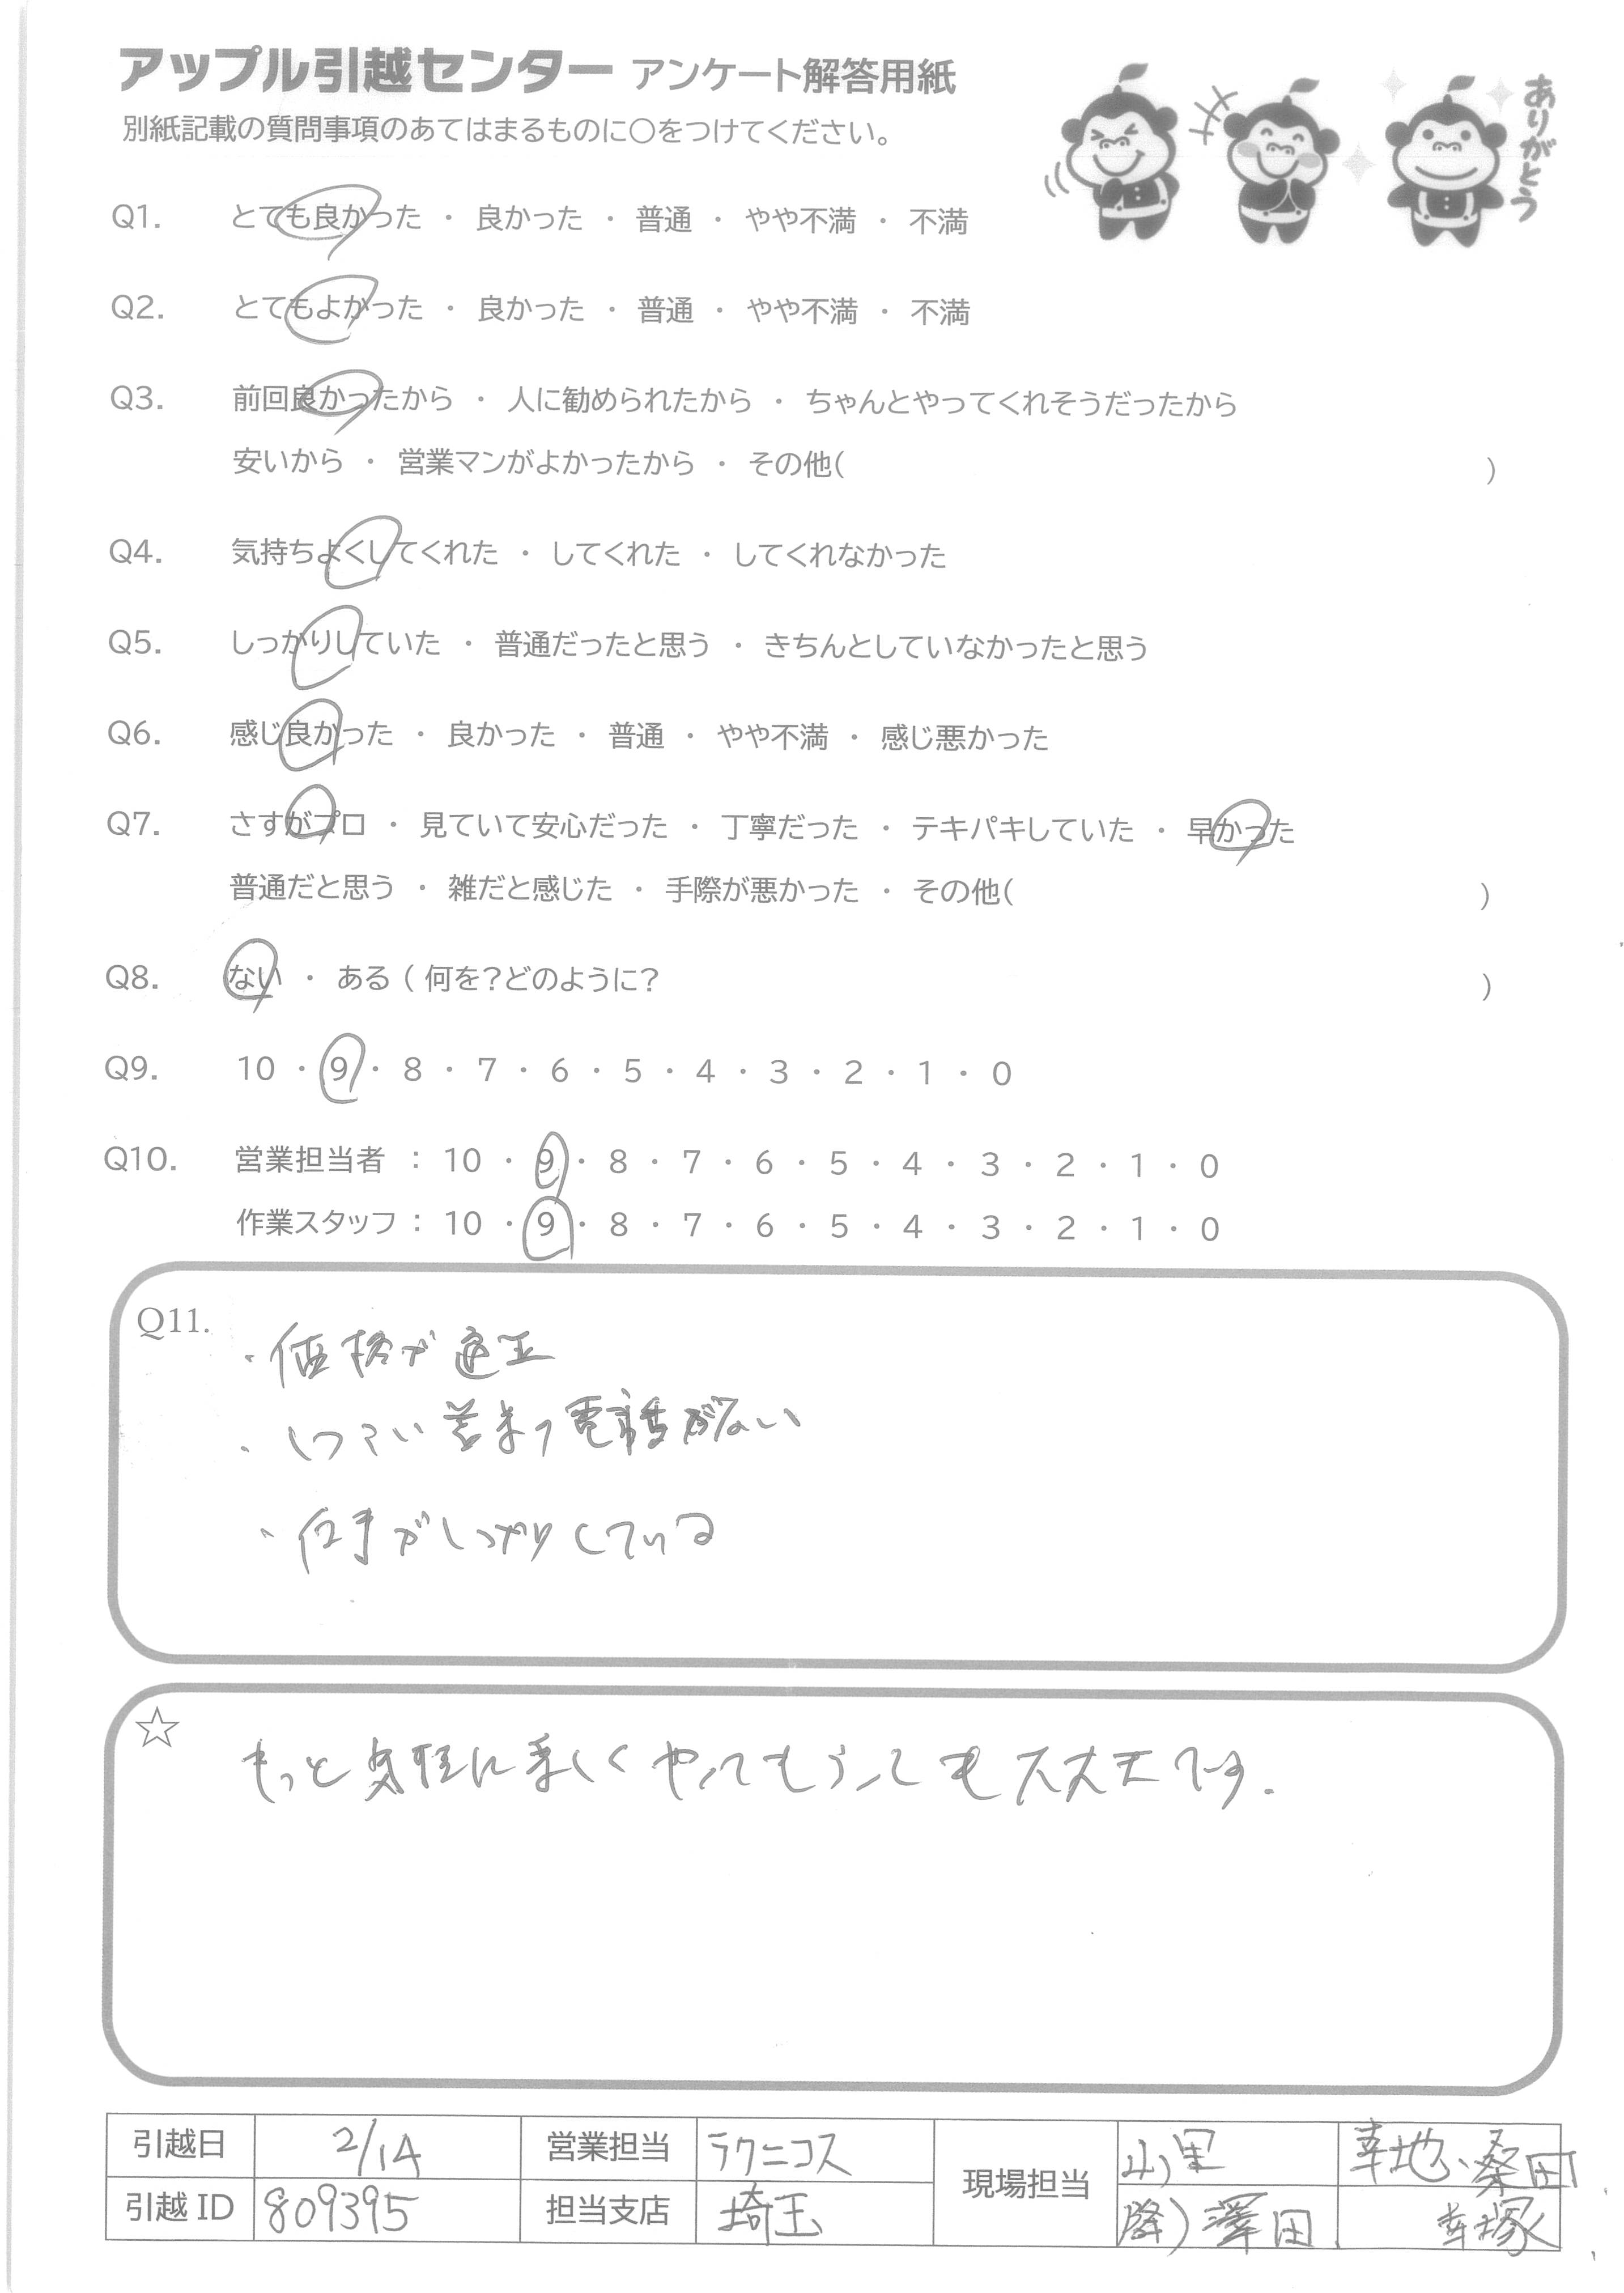 アップル引越センター アンケート解答用紙
別紙記載の質問事項のあてはまるものに○をつけてください。
ありがとう
Q1. とても良かった ・ 良かった ・ 普通 ・ やや不満 ・ 不満
Q2. とてもよかった ・ 良かった ・ 普通 ・ やや不満 ・ 不満
Q3. 前回良かったから ・ 人に勧められたから ・ ちゃんとやってくれそうだったから
安いから ・ 営業マンがよかったから ・ その他( )
Q4. 気持ちよくしてくれた ・ してくれた ・ してくれなかった
Q5. しっかりしていた ・ 普通だったと思う ・ きちんとしていなかったと思う
Q6. 感じ良かった ・ 良かった ・ 普通 ・ やや不満 ・ 感じ悪かった
Q7. さすがプロ ・ 見ていて安心だった ・ 丁寧だった ・ テキパキしていた ・ 早かった
普通だと思う ・ 雑だと感じた ・ 手際が悪かった ・ その他( )
Q8. ない ・ ある ( 何を?どのように? )
Q9. 10 ・ 9 ・ 8 ・ 7 ・ 6 ・ 5 ・ 4 ・ 3 ・ 2 ・ 1 ・ 0
Q10. 営業担当者 : 10 ・ 9 ・ 8 ・ 7 ・ 6 ・ 5 ・ 4 ・ 3 ・ 2 ・ 1 ・ 0
作業スタッフ : 10 ・ 9 ・ 8 ・ 7 ・ 6 ・ 5 ・ 4 ・ 3 ・ 2 ・ 1 ・ 0
Q11.
・価格が適正
・しつこい営業の電話がない
・若手がしっかりしている
☆
もっと気軽に楽しくやってもらっても大丈夫です.
引越日 2/14 営業担当 ラクニコス 現場担当 山)里 幸地、桑田
引越 ID 809395 担当支店 埼玉 降)澤田